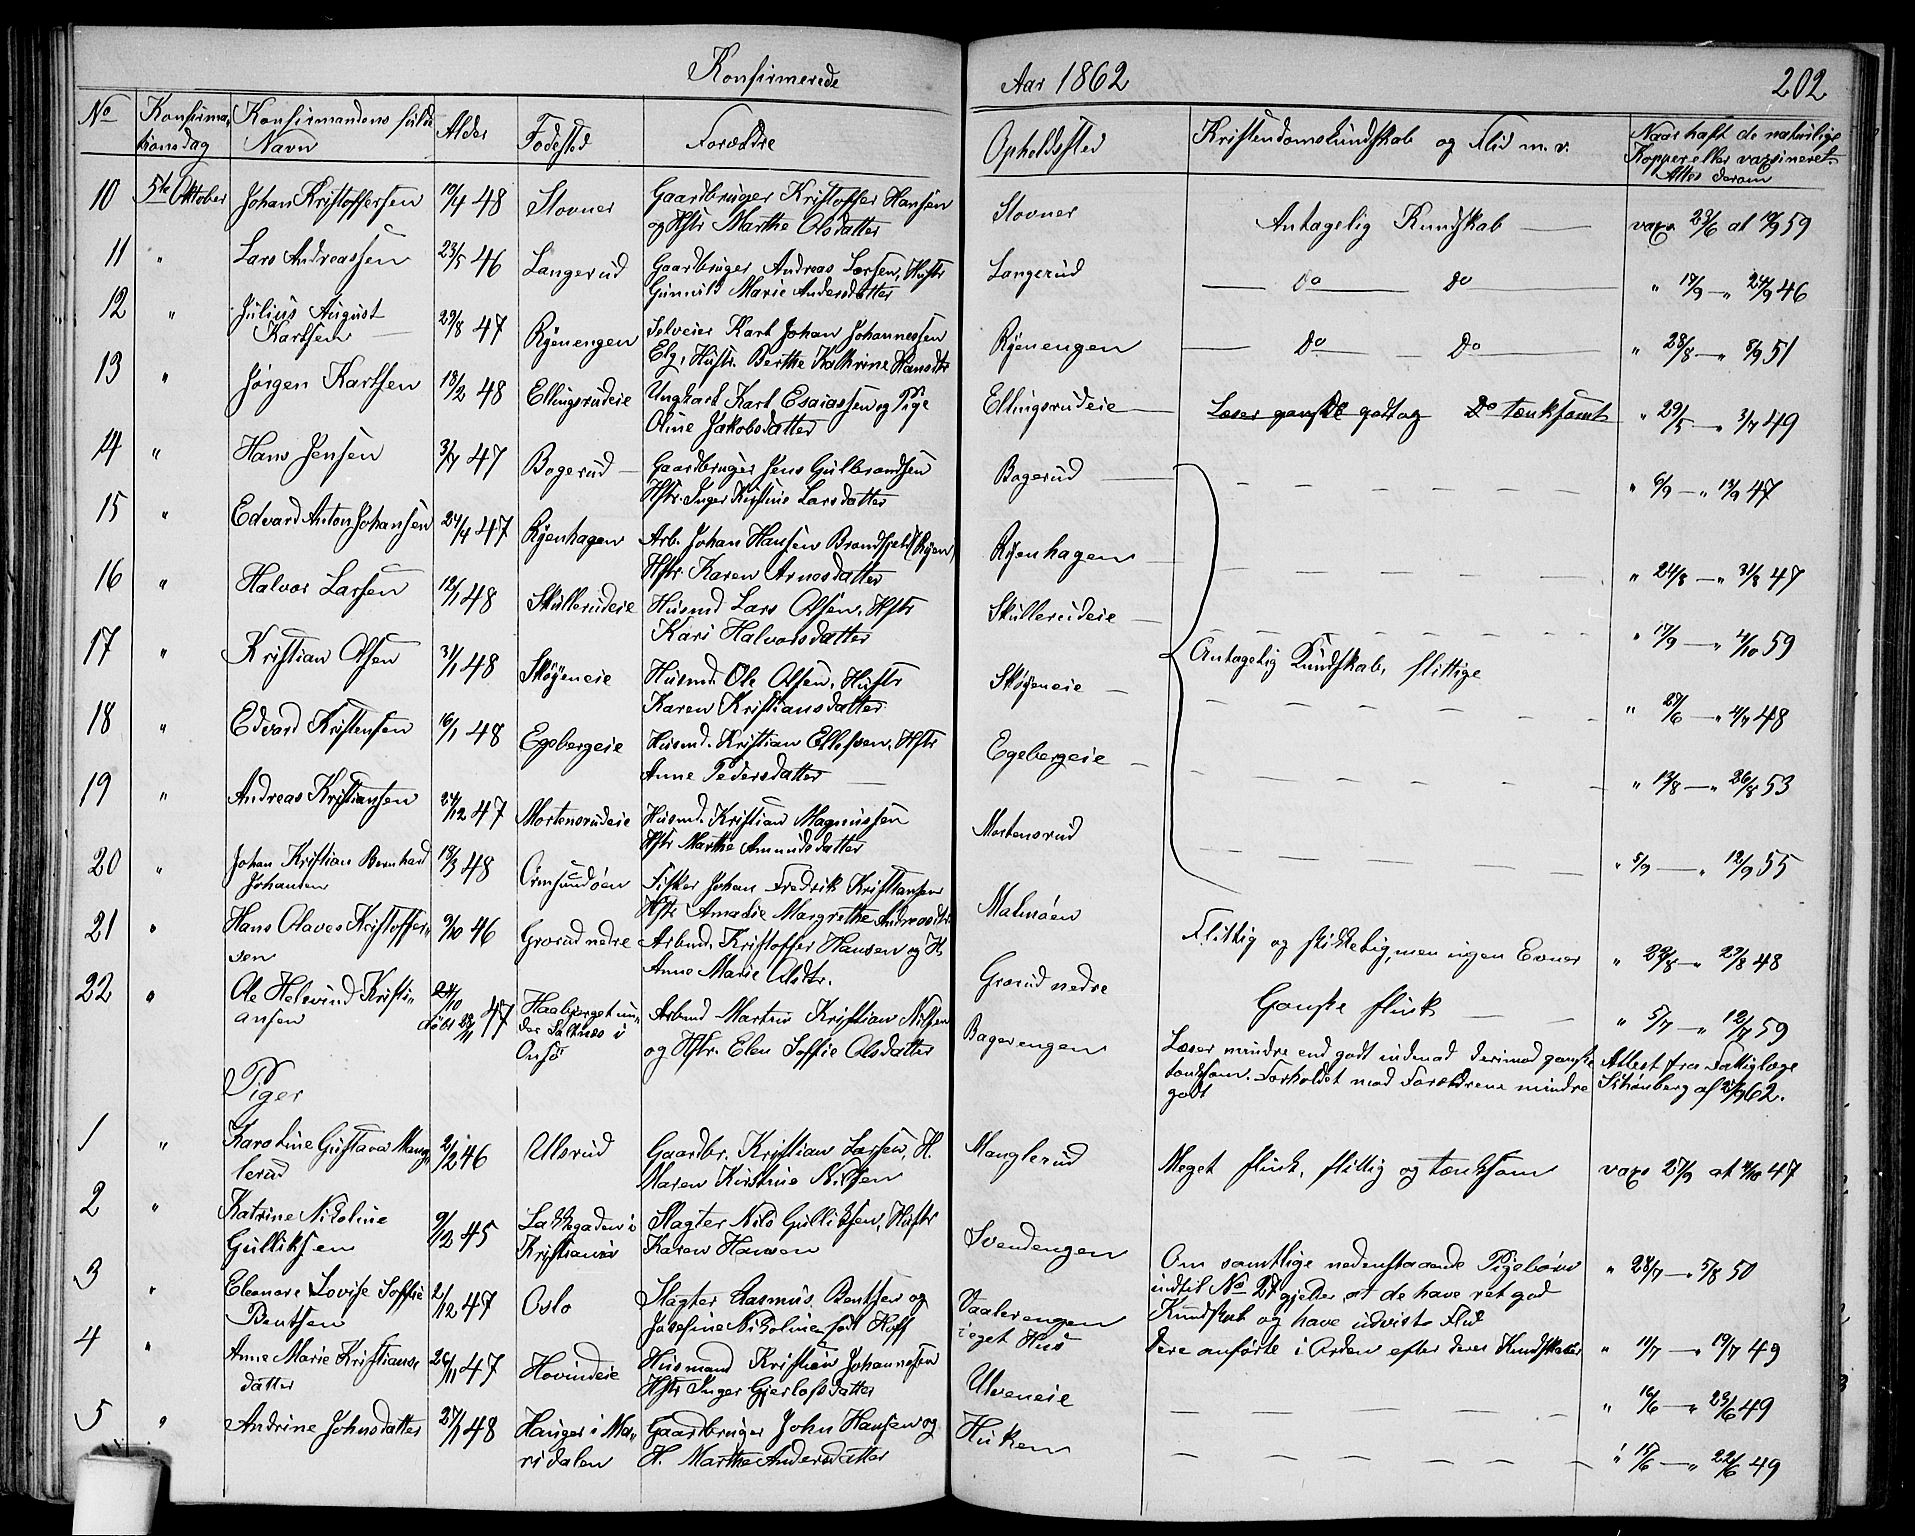 Konfirmerede Aar 1862 202
No Konfirma- Konfirmandens fulde Alder Fødested Forældre Opholdssted Kristendomskundskab og Flid m. v. Naar haft de naturlige
tionsdag Navn Kopper eller vaxineret.
Attest derom
10 5te Oktober Johan Kristoffersen 10/4 48 Stovner Gaardbruger Kristoffer Hansen Stovner Antagelig Kundskab vaxs 23/6 at 10/9 59
og Hstr Marthe Olsdatter
11 " Lars Andreassen 23/5 46 Langerud Gaardbruger Andreas Larsen, Hustr Langerud Do Do " 17/9 — " 24/9 46
Gunnild Marie Andersdatter
12 " Julius August 29/8 47 Ryenengen Selveier Karl Johan Johannessen Ryenengen Do Do " 28/8 — " 8/9 51
Karlsen Elg, Hustr. Berthe Kathrine Hansdtr
13 " Jørgen Karlsen 18/2 48 Ellingsrudeie Ungkarl Karl Esaiassen og Pige Ellingsrudeie Læser ganske godt og Do tænksomt " 29/5 — " 3/7 49
Oline Jakobsdatter
14 " Hans Jensen 3/7 47 Bogerud Gaardbruger Jens Gulbrandsen Bogerud " 6/9 — " 13/9 47
Hstr. Inger Kirstine Larsdatter
15 " Edvard Anton Johansen 24/4 47 Ryenhagen Arb. Johan Hansen Brandfjeld (Ryen) Ryenhagen " 24/8 — " 31/8 47
Hstr. Karen Arnesdatter
16 " Halvor Larsen 12/1 48 Skullerudeie Husmd Lars Olsen, Hstr Skullerudeie " 17/9 — " 4/10 59
Kari Halvorsdatter
17 " Kristian Olsen 31/1 48 Skøyeneie Husmd. Ole Olsen, Hustr Skøyeneie Antagelig Kundskab, flittige " 27/6 — " 4/7 48
Karen Kristiansdatter
18 " Edvard Kristensen 16/1 48 Egebergeie Husmd. Kristian Ellefsen, Hstr Egebergeie " 13/8 — " 26/8 53
Anne Pedersdatter
19 " Andreas Kristiansen 24/12 47 Mortensrudeie Husmd. Kristian Magnussen Mortensrud " 5/9 — " 12/9 55
Hstr Marthe Amundsdatter
20 " Johan Kristian Bernhard 18/3 48 Ormsundøen Fisker Johan Fredrik Kristiansen Malmøen Flittig og skikkelig, men ingen Evner " 22/8 — " 29/8 48
Johansen Hstr Amalie Margrethe Andreasdtr
21 " Hans Olaves Kristoffer- 9/10 46 Grorud nedre Arbmd. Kristoffer Hansen og H. Grorud nedre Ganske flink " 5/7 — " 12/7 59
sen Anne Marie Olsdtr.
22 " Ole Helevind Kristi- 24/10 47 Haabjerget un- Arbmd Martin Kristian Nilsen Bagerengen Læser mindre end godt indenad derimod ganske Attest fra Fattiglæge
ansen døbt 28/11 der Saltnes i og Hstr. Elen Soffie Olsdatter tænksom. Forholdet mod Forældrene mindre Schønberg af 27/9 62.
Onsø godt
Piger
1 " Karoline Gustava Mang- 2/12 46 Ulsrud Gaardbr. Kristian Larsen, H. Manglerud Meget flink, flittig og tænksom vaxs 27/9 at 4/10 47
lerud Maren Kirstine Nilsen
2 " Katrine Nikoline 9/12 45 Lakkegaden i Slagter Nils Gulliksen, Hustr Svendengen Om samtlige nedenstaaende Pigebørn " 28/7 — " 5/8 50
Gulliksen Kristiania Karen Hansen indtil No 27 gjelder, at de have ret god
3 " Eleonore Lovise Soffie 2/12 47 Oslo Slagter Rasmus Bentsen og Vaalerengen Kundskab og have udvist Flid " 11/7 — " 19/7 49
Bentsen Josefine Nikoline født Hoff i eget Hus Dere anførte i Orden efter deres Kundskaber
4 " Anne Marie Kristians- 26/11 47 Hovindeie Husmand Kristian Johannessen Ulveneie " 16/6 — " 23/6 49
datter Hstr Inger Gjerlofsdatter
5 " Andrine Johnsdatter 27/1 48 Hauger i Ma- Gaardbruger John Hansen og Huken " 15/6 — " 22/6 49
ridalen H. Marthe Andersdatter